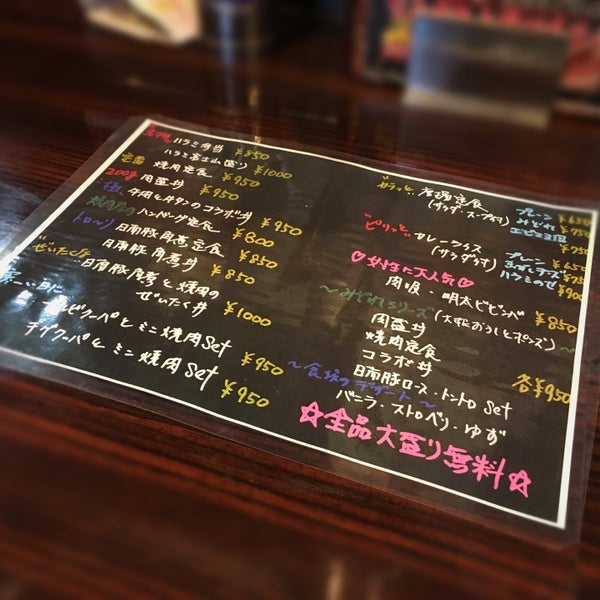 名物 ハラミ弁当 ¥850
ハラミ富士山盛り ¥1000
定番 焼肉定食 ¥950
200g 肉盛丼 ¥950
牛肉と牛タンのコラボ丼 ¥950
ハンバーグ定食 ¥800
トロ〜リ 日南豚角煮定食 ¥850
日南豚角煮丼 ¥850
ぜいたく 日南豚角煮と焼肉の
ぜいたく丼 ¥1000
カルビクッパとミニ焼肉Set ¥950
テグクッパとミニ焼肉Set ¥950
カラッと 唐揚定食
(サラダ・スープ付)
プレーン ¥650
みぞれ ¥750
¥750
ピリッと カレーライス
(サラダ付)
プレーン ¥650
¥750
ハラミのせ ¥900
♡女性に大人気♡
肉唄・明太ビビンバ ¥850
〜みぞれシリーズ(大根おろしとポンズ)〜
肉盛丼
焼肉定食
コラボ丼
日南豚ロース・トントロ Set
各¥950
〜食後のデザート〜
バニラ・ストロベリ・ゆず
☆全品大盛り無料☆